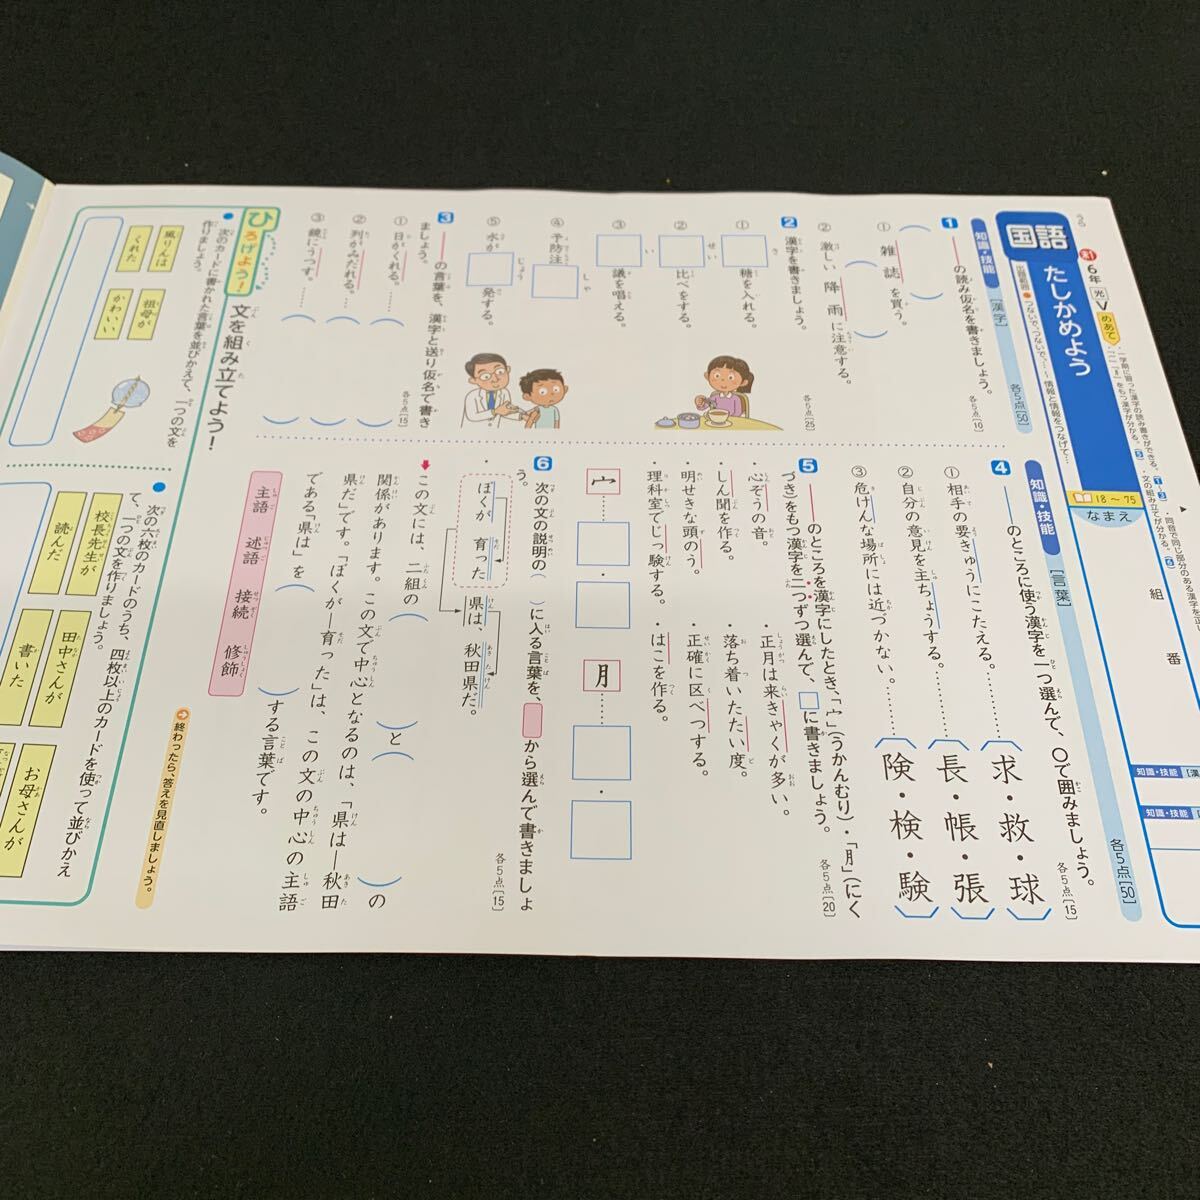 国語
たしかめよう
6年
光
V
めあて
18～75
なまえ
組
番
知識・技能
[漢字]
各5点[50]
1 ――の読み仮名を書きましょう。
各5点[10]
① 雑誌を買う。
② 激しい降雨に注意する。
2 漢字を書きましょう。
各5点[25]
① 糖を入れる。
② せい 比べをする。
③ い 議を唱える。
④ 予防注 しゃ
⑤ 水が じょう 発する。
3 ――の言葉を、漢字と送り仮名で書きましょう。
各5点[15]
① 日がくれる。
② 列がみだれる。
③ 鏡にうつす。
知識・技能
[言葉]
各5点[50]
4 ――のところに使う漢字を一つ選んで、○で囲みましょう。
各5点[15]
① 相手の要きゅうにこたえる。 求・救・球
② 自分の意見を主ちょうする。 長・帳・張
③ 危けんな場所には近づかない。 険・検・験
5 ――のところを漢字にしたとき、「宀」(うかんむり)・「月」(にくづき)をもつ漢字を二つずつ選んで、□に書きましょう。
各5点[20]
・心ぞうの音。
・しん聞を作る。
・明せきな頭のう。
・理科室でじっ験する。
・正月は来きゃくが多い。
・落ち着いたたい度。
・正確に区べつする。
・はこを作る。
宀
月
6 次の文の説明の( )に入る言葉を、 から選んで書きましょう。
各5点[15]
・ぼくが 育った 県は、秋田県だ。
この文には、二組の( )と( )の関係があります。この文で中心となるのは、「県は―秋田県だ」です。「ぼくが―育った」は、この文の中心の主語である「県は」を( )する言葉です。
主語 述語 接続 修飾
ひろげよう! 文を組み立てよう!
● 次のカードに書かれた言葉を並びかえて、一つの文を作りましょう。
風りんは
くれた
祖母が
かわいい
● 次の六枚のカードのうち、四枚以上のカードを使って並びかえて、一つの文を作りましょう。
校長先生が
読んだ
田中さんが
書いた
お母さんが
終わったら、答えを見直しましょう。